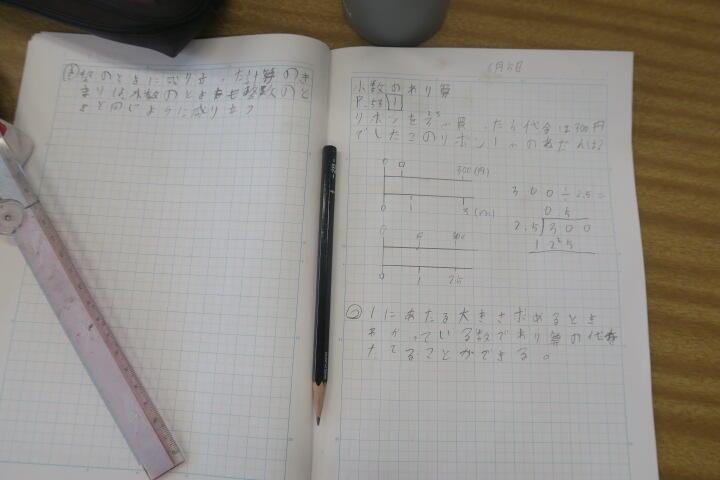 整数のときに成り立った計算のき
まりは小数のときも整数のと
きと同じように成り立つ
6月5日
小数のわり算
P.53 1
リボンを2.5m買ったら代金は300円
でしたこのリボン1mのねだんは?
0 □ 300(円)
0 1 3(m)
300÷2.5=
0 5
2.5 300
125
0 □ 300
0 1 2.5
1にあたる大きさを求めるとき
わかっている数でわり算の式を
たてることができる。